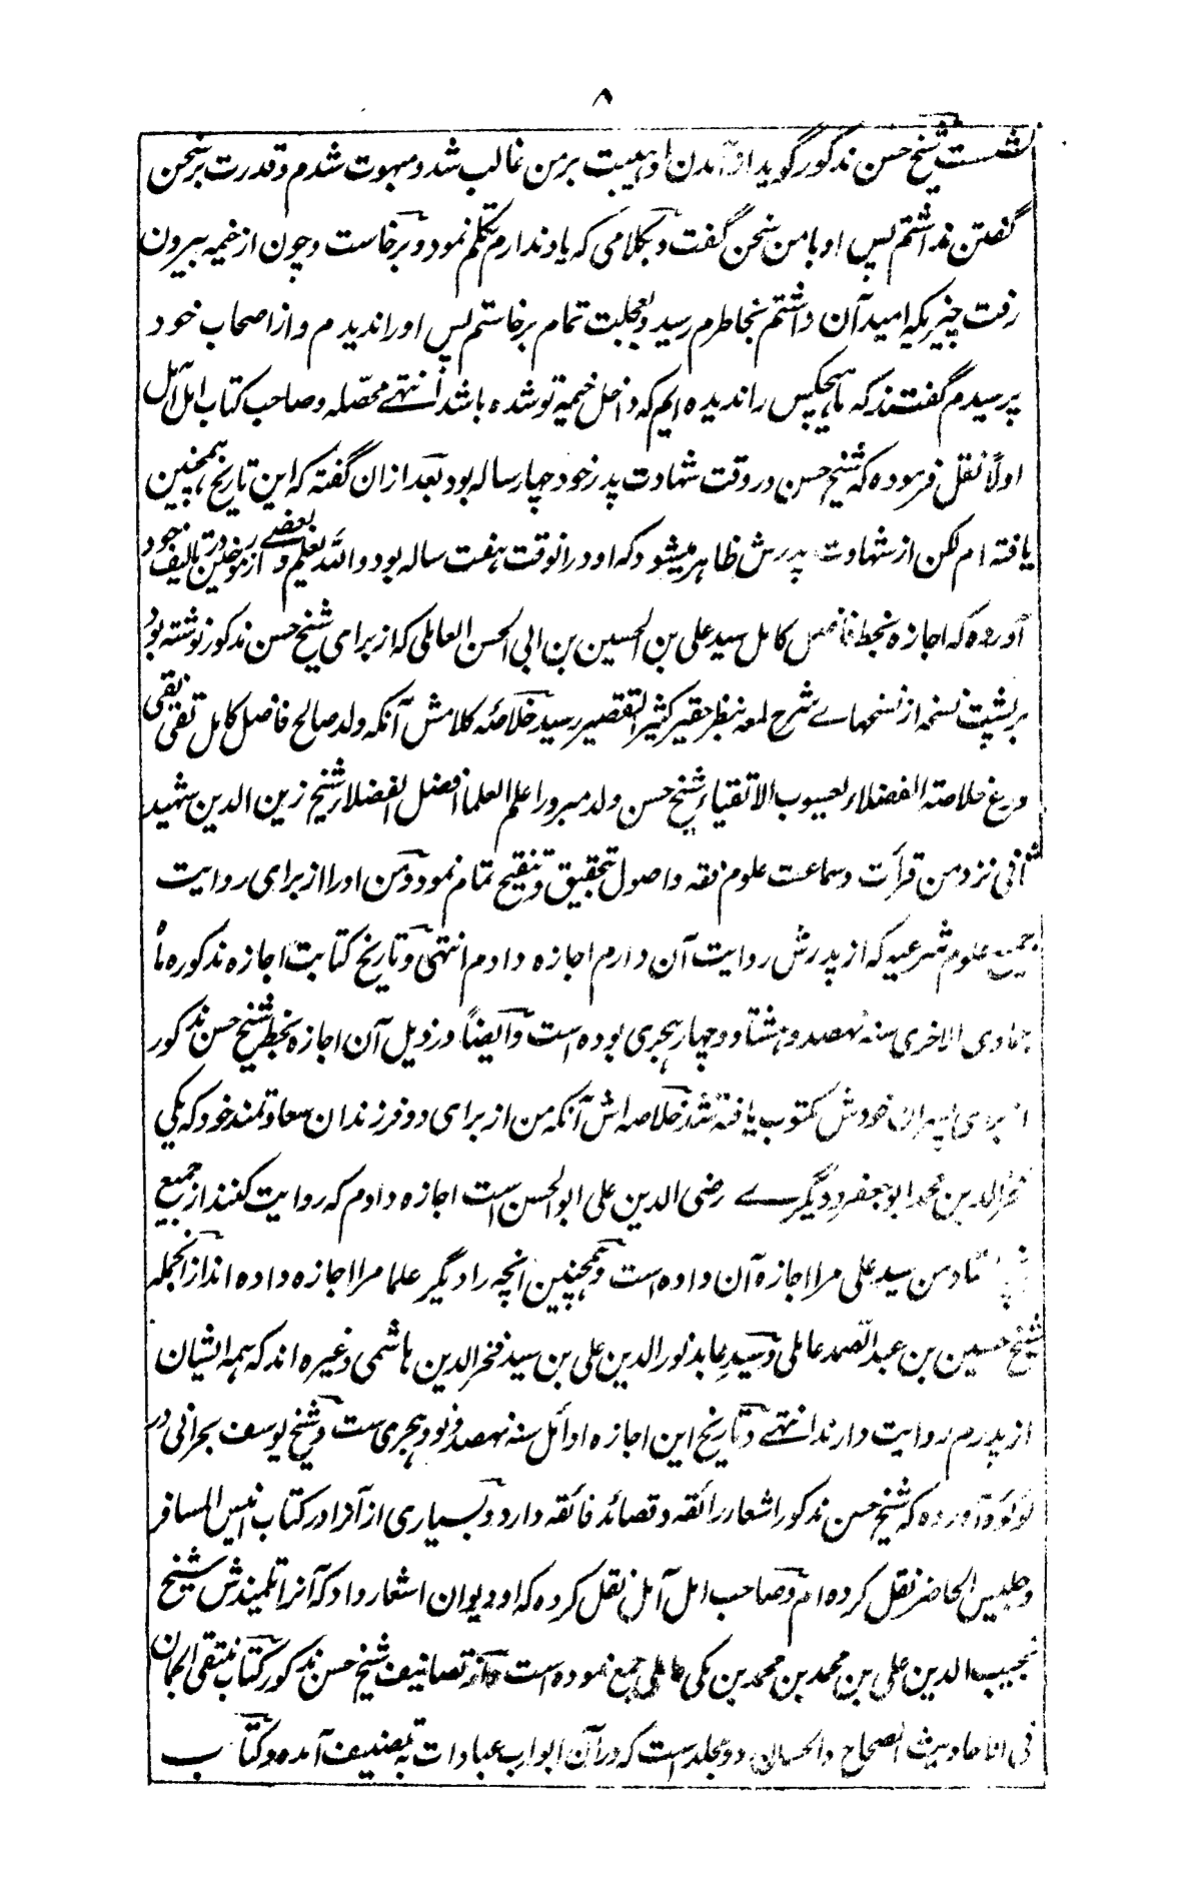 ۸
نشست شیخ حسن مذکور گوید از آمدن او هیبت بر من غالب شد و مبهوت شدم و قدرت بر سخن
گفتن نداشتم پس او با من سخن گفت و بکلامی که یاد ندارم تکلم نمود و برخاست و چون از خیمه بیرون
رفت چیزیکه امید آن داشتم بخاطرم رسید و بعجلت تمام برخاستم پس او را ندیدم و از اصحاب خود
پرسیدم گفتند که ما هیچکس را ندیده ایم که داخل خیمهٔ تو شده باشد انتهے محصّله و صاحب کتاب امل آمل
اولاً نقل فرموده که شیخ حسن در وقت شهادت پدر خود چهار ساله بود بعد ازان گفته که این تاریخ همچنین
یافته ام لکن از شهادت پدرش ظاهر میشود که او در انوقت هفت ساله بود والله یعلم و بعضے از مورخین در تالیف خود
آورده که اجازه بخط فاضل کامل سید علی بن الحسین بن ابی الحسن العاملی که از برای شیخ حسن مذکور نوشته بود
بر پشت نسخه از نسخهاے شرح لمعه بنظر حقیر کثیر التقصیر رسید خلاصهٔ کلامش آنکه ولد صالح فاضل کامل تقی نقی
ورع خلاصة الفضلاء یعسوب الاتقیاء شیخ حسن ولد مبرور اعلم العلما افضل الفضلاء شیخ زین الدین شهید
ثانی نزد من قرأت و سماعت علوم فقه و اصول بتحقیق و تنقیح تمام نمود و من او را از برای روایت
جمیع علوم شرعیه که از پدرش روایت آن دارم اجازه دادم انتهی و تاریخ کتابت اجازه مذکوره ماه
جمادی الاخری سنه نهصد و هشتاد و چهار هجری بوده است و ایضاً در ذیل آن اجازه بخط شیخ حسن مذکور
از برای پسران خودش مکتوب یافته شد خلاصه اش آنکه من از برای دو فرزندان سعادتمند خود که یکی
فخر الدین محمد ابو جعفر و دیگرے رضی الدین علی ابو الحسن است اجازه دادم که روایت کنند از جمیع
استاد من سید علی مرا اجازهٔ آن داده است و همچنین آنچه را دیگر علما مرا اجازه داده اند از انجمله
شیخ حسین بن عبد الصمد عاملی و سید عابد نور الدین علی بن سید فخر الدین هاشمی و غیره اند که همه ایشان
از پدرم روایت دارند انتهے و تاریخ این اجازه اوائل سنه نهصد و نود هجری ست و شیخ یوسف بحرانی در
لؤلؤه آورده که شیخ حسن مذکور اشعار رائقه و قصائد فائقه دارد و بسیاری از آنرا در کتاب انیس المسافر
و جلیس الحاضر نقل کرده ام و صاحب امل آمل نقل کرده که او دیوان اشعار دارد که آنرا تلمیذش شیخ
نجیب الدین علی بن محمد بن محمد بن مکی عاملی جمع نموده است و از تصانیف شیخ حسن مذکور کتاب منتقی الجمان
فی الاحادیث الصحاح والحسان دو مجلد است که در آن ابواب عبادات به تصنیف آمده و کتاب